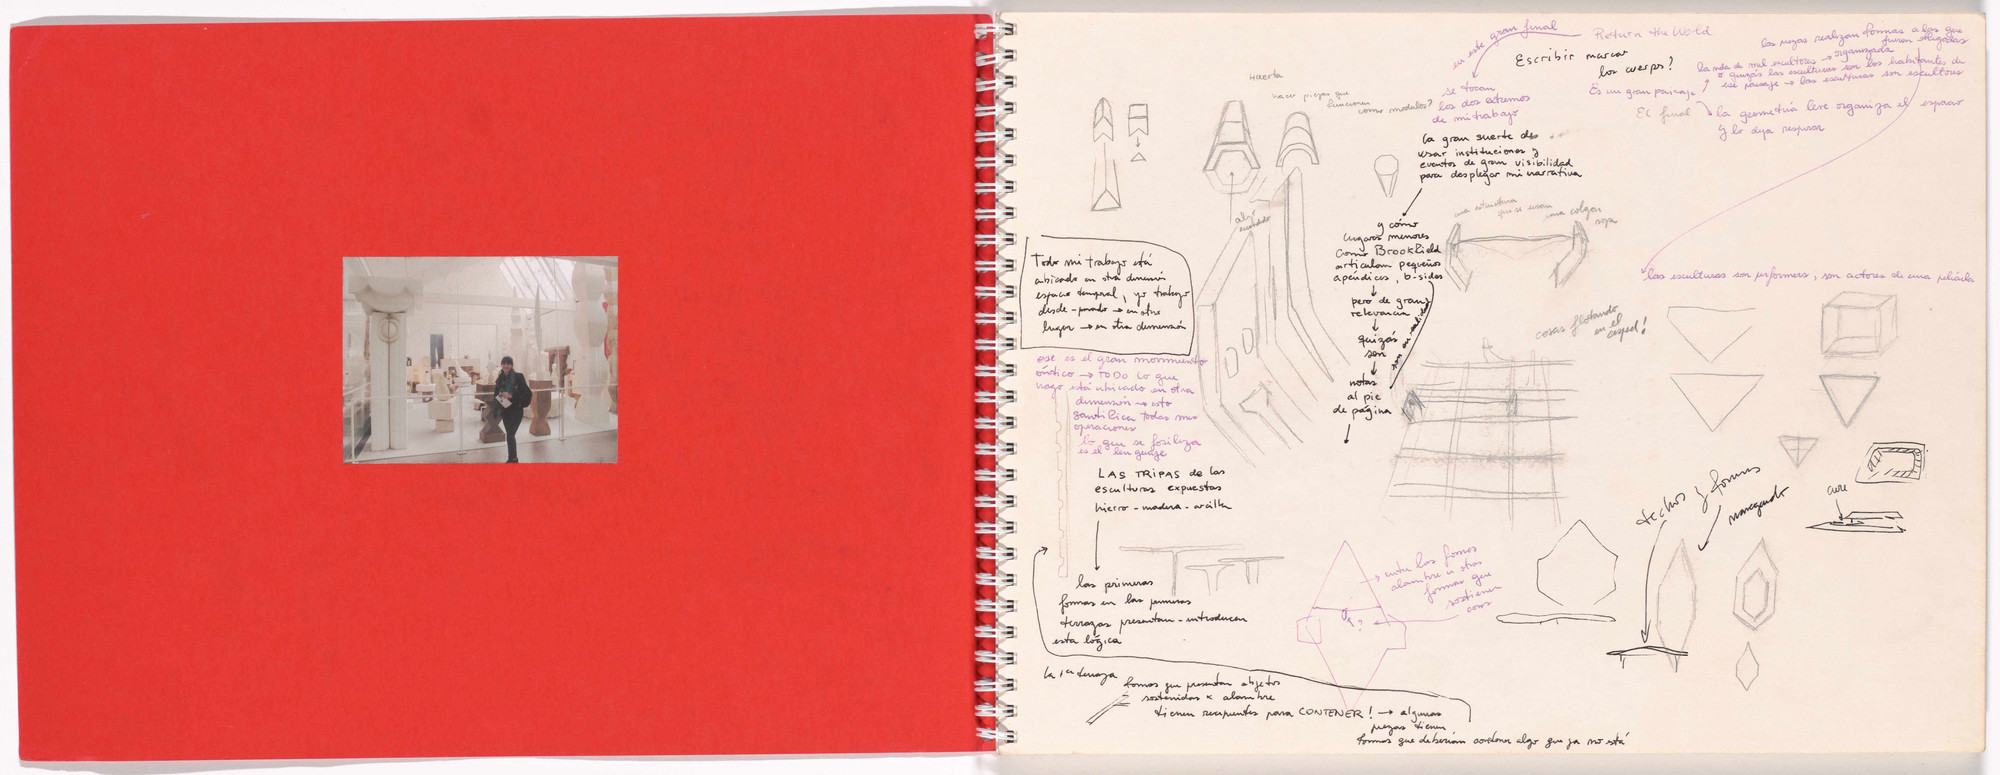 en este gran final
Return the World
Escribir marcar
los cuerpos?
las piezas realizan formas a las que
fueron obligadas
organizada
o quizás las esculturas son los habitantes de
ese paisaje → las esculturas son escultores
Es un gran paisaje
El final
la geometría leve organiza el espacio
y lo deja respirar
Huerta
hacer piezas que
funcionen
como modulos?
se tocan
los dos extremos
de mi trabajo
la gran suerte de
usar instituciones y
eventos de gran visibilidad
para desplegar mi narrativa
y cómo
lugares menores
como Brookfield
articulan pequeños
apéndices, b-sides
pero de gran
relevancia
quizás
son
notas
al pie
de página
son en realidad
algo
una estructura
que se usan
una colgar
ropa
las esculturas son performers, son actores de una película
cosas flotando
en el
césped!
Todo mi trabajo está
ubicado en otra dimensión
espacio temporal, yo trabajo
desde → en otro
lugar → en otra dimensión
ese es el gran movimiento
óntico → TODO lo que
hago está ubicado en otra
dimensión → esto
santifica todas mis
operaciones
lo que se fosiliza
es el lenguaje
LAS TRIPAS de las
esculturas expuestas
hierro - madera - arcilla
las primeras
formas en las primeras
terrazas presentan - introducen
esta lógica
la 1era terraza
formas que presentan objetos
sostenidas x alambre
tienen recipientes para CONTENER! → algunas
piezas tienen
formas que deberían contener algo que ya no está
→ entre las formas
alambre u otras
formas que
sostienen
cosas
?
techos y formas
navegando